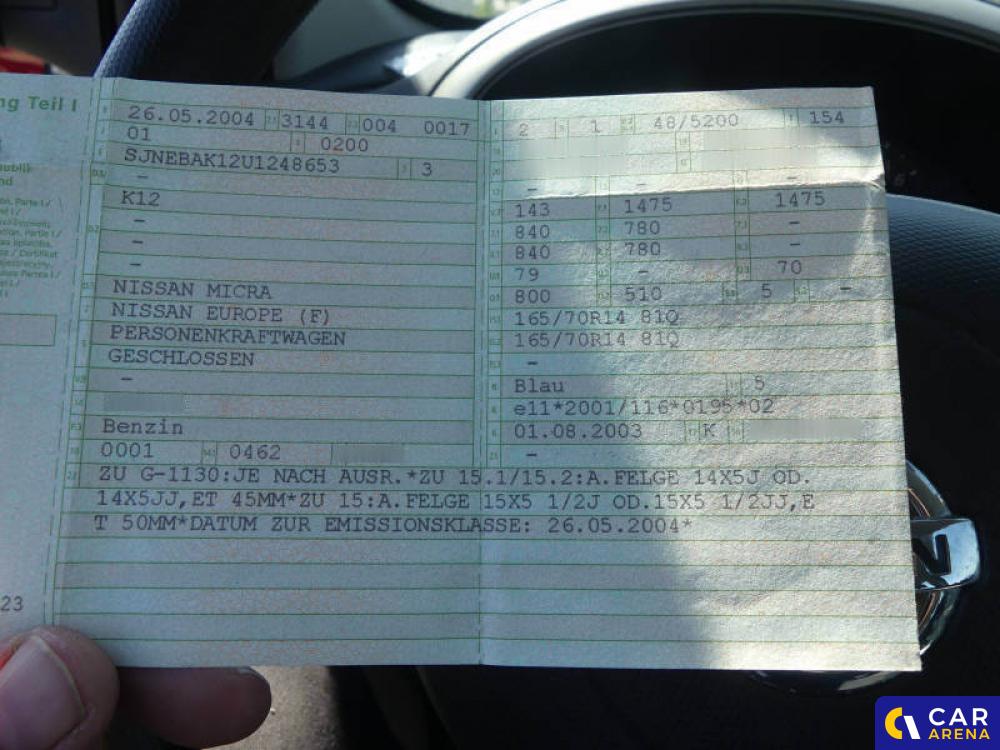 ng Teil I
26.05.2004 3144 004 0017
01 0200
SJNEBAK12U1248653 3
–
K12
–
–
–
NISSAN MICRA
NISSAN EUROPE (F)
PERSONENKRAFTWAGEN
GESCHLOSSEN
–
Benzin
0001 0462
2 1 48/5200 154
– – –
143 1475 1475
840 780 –
840 780 –
79 – 70
800 510 5 –
165/70R14 81Q
165/70R14 81Q
–
Blau 5
e11*2001/116*0195*02
01.08.2003 K
–
ZU G-1130:JE NACH AUSR.*ZU 15.1/15.2:A.FELGE 14X5J OD.
14X5JJ,ET 45MM*ZU 15:A.FELGE 15X5 1/2J OD.15X5 1/2JJ,E
T 50MM*DATUM ZUR EMISSIONSKLASSE: 26.05.2004*
23
CAR
ARENA